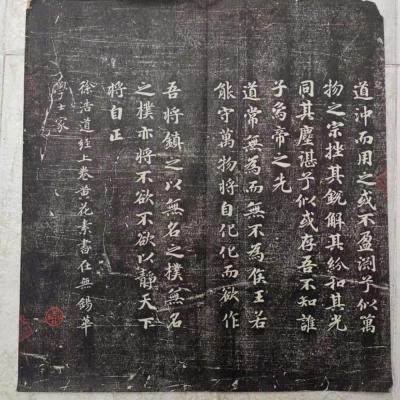 道沖而用之或不盈淵乎似萬
物之宗挫其銳解其紛和其光
同其塵湛乎似或存吾不知誰
子象帝之先
道常無為而無不為侯王若
能守萬物將自化化而欲作
吾將鎮之以無名之樸無名
之樸亦將不欲不欲以靜天下
將自正
徐浩道經上卷黄花素書在無錫華
學士家